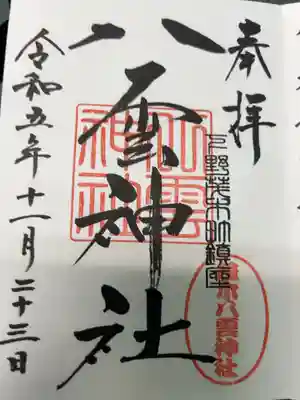 奉拝
下野茂木町鎮座
茂木八雲神社
八雲神社
八雲
神社
令和五年十一月二十三日